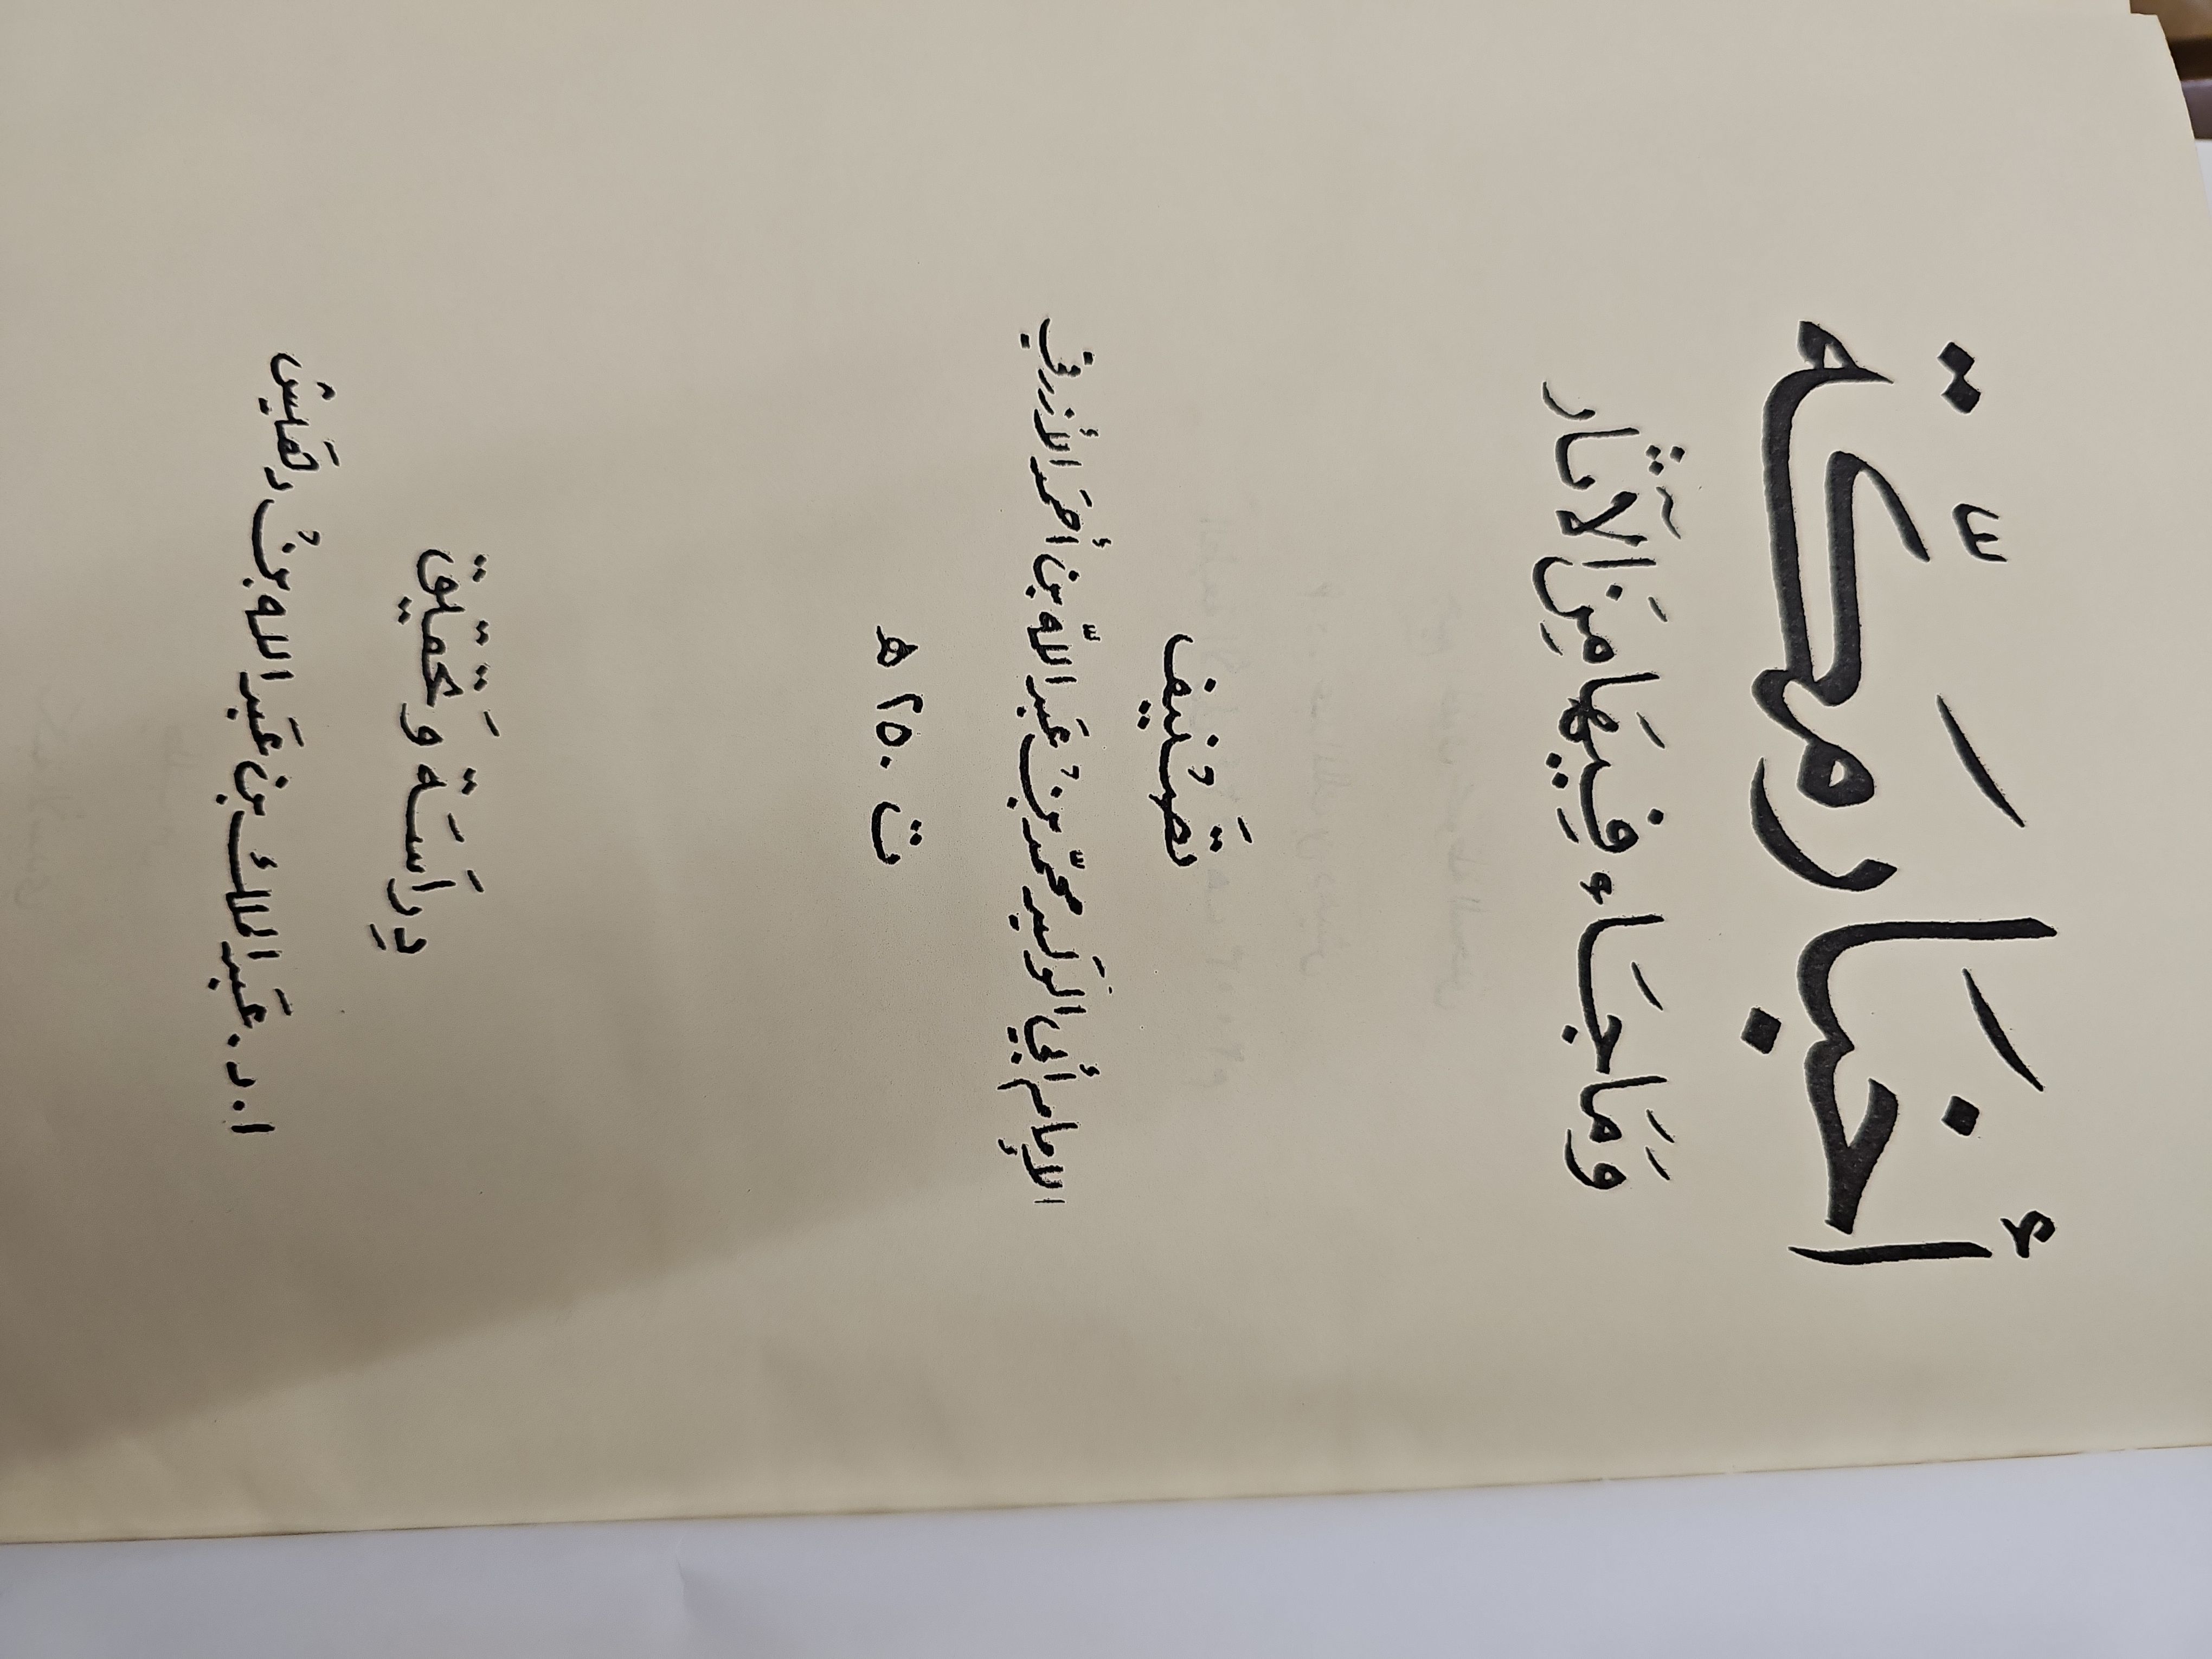 أَخْبَار مَكَّة
وَمَا جَاءَ فِيهَا مِنَ الآثَار
تَصْنِيف
الإمام أبي الوَليد محمّد بنْ عَبد اللّه بن أحمَد الأزرقي
ت ٢٥٠ هـ
دِرَاسَة وَتحقيق
أ. د. عَبد الملك بن عَبد الله بنْ دهَيشْ